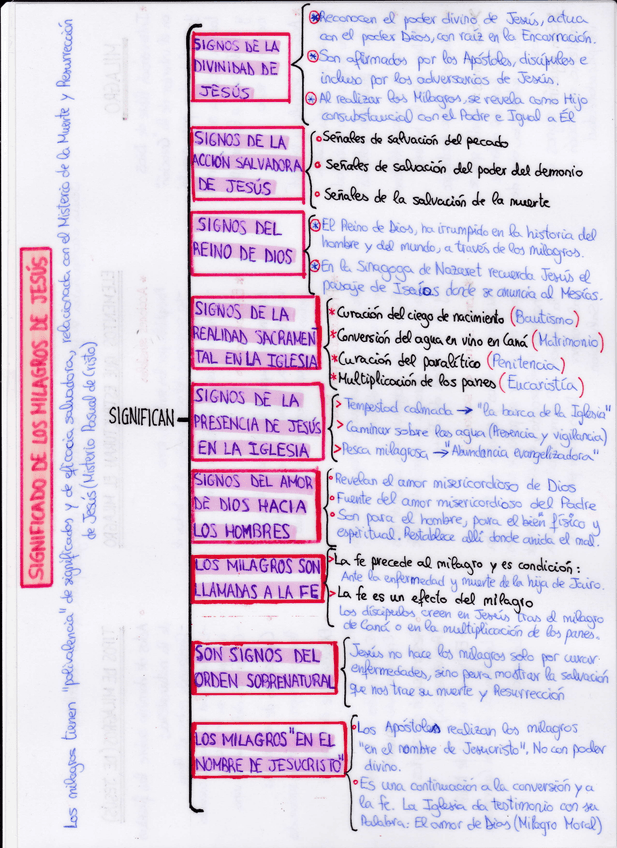 SIGNIFICADO DE LOS MILAGROS DE JESÚS
Los milagros tienen "polivalencia" de significados y de eficacia salvadora, relacionada con el Misterio de la Muerte y Resurrección
de Jesús (Misterio Pascual de Cristo)
SIGNIFICAN
SIGNOS DE LA
DIVINIDAD DE
JESÚS
* Reconocen el poder divino de Jesús, actua
con el poder Dios, con raíz en la Encarnación.
* Son afirmados por los Apóstoles, discípulos e
incluso por los adversarios de Jesús.
* Al realizar los Milagros, se revela como Hijo
consubstancial con el Padre e Igual a Él
SIGNOS DE LA
ACCIÓN SALVADORA
DE JESÚS
• Señales de salvación del pecado
• Señales de salvación del poder del demonio
• Señales de la salvación de la muerte
SIGNOS DEL
REINO DE DIOS
* El Reino de Dios, ha irrumpido en la historia del
hombre y del mundo, a través de los milagros.
* En la Sinagoga de Nazaret recuerda Jesús el
pasaje de Isaías donde se anuncia al Mesías.
SIGNOS DE LA
REALIDAD SACRAMEN
TAL EN LA IGLESIA
* Curación del ciego de nacimiento (Bautismo)
* Conversión del agua en vino en Caná (Matrimonio)
* Curación del paralítico (Penitencia)
* Multiplicación de los panes (Eucaristía)
SIGNOS DE LA
PRESENCIA DE JESÚS
EN LA IGLESIA
> Tempestad calmada → "la barca de la Iglesia"
> Caminar sobre las agua (Presencia y vigilancia)
> Pesca milagrosa → "Abundancia evangelizadora"
SIGNOS DEL AMOR
DE DIOS HACIA
LOS HOMBRES
• Revelan el amor misericordioso de Dios
• Fuente del amor misericordioso del Padre
• Son para el hombre, para el bien físico y
espiritual. Restablece allí donde anida el mal.
LOS MILAGROS SON
LLAMADAS A LA FE
> La fe precede al milagro y es condición:
Ante la enfermedad y muerte de la hija de Jairo.
> La fe es un efecto del milagro
Los discípulos creen en Jesús tras el milagro
de Caná o en la multiplicación de los panes.
SON SIGNOS DEL
ORDEN SOBRENATURAL
Jesús no hace los milagros solo por curar
enfermedades, sino para mostrar la salvación
que nos trae su muerte y Resurrección
LOS MILAGROS "EN EL
NOMBRE DE JESUCRISTO"
• Los Apóstoles realizan los milagros
"en el nombre de Jesucristo". No con poder
divino.
• Es una continuación a la conversión y a
la fe. La Iglesia da testimonio con su
Palabra: El amor de Dios (Milagro Moral)